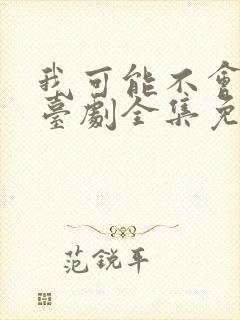 我可能不會
臺劇全集免
范銳平